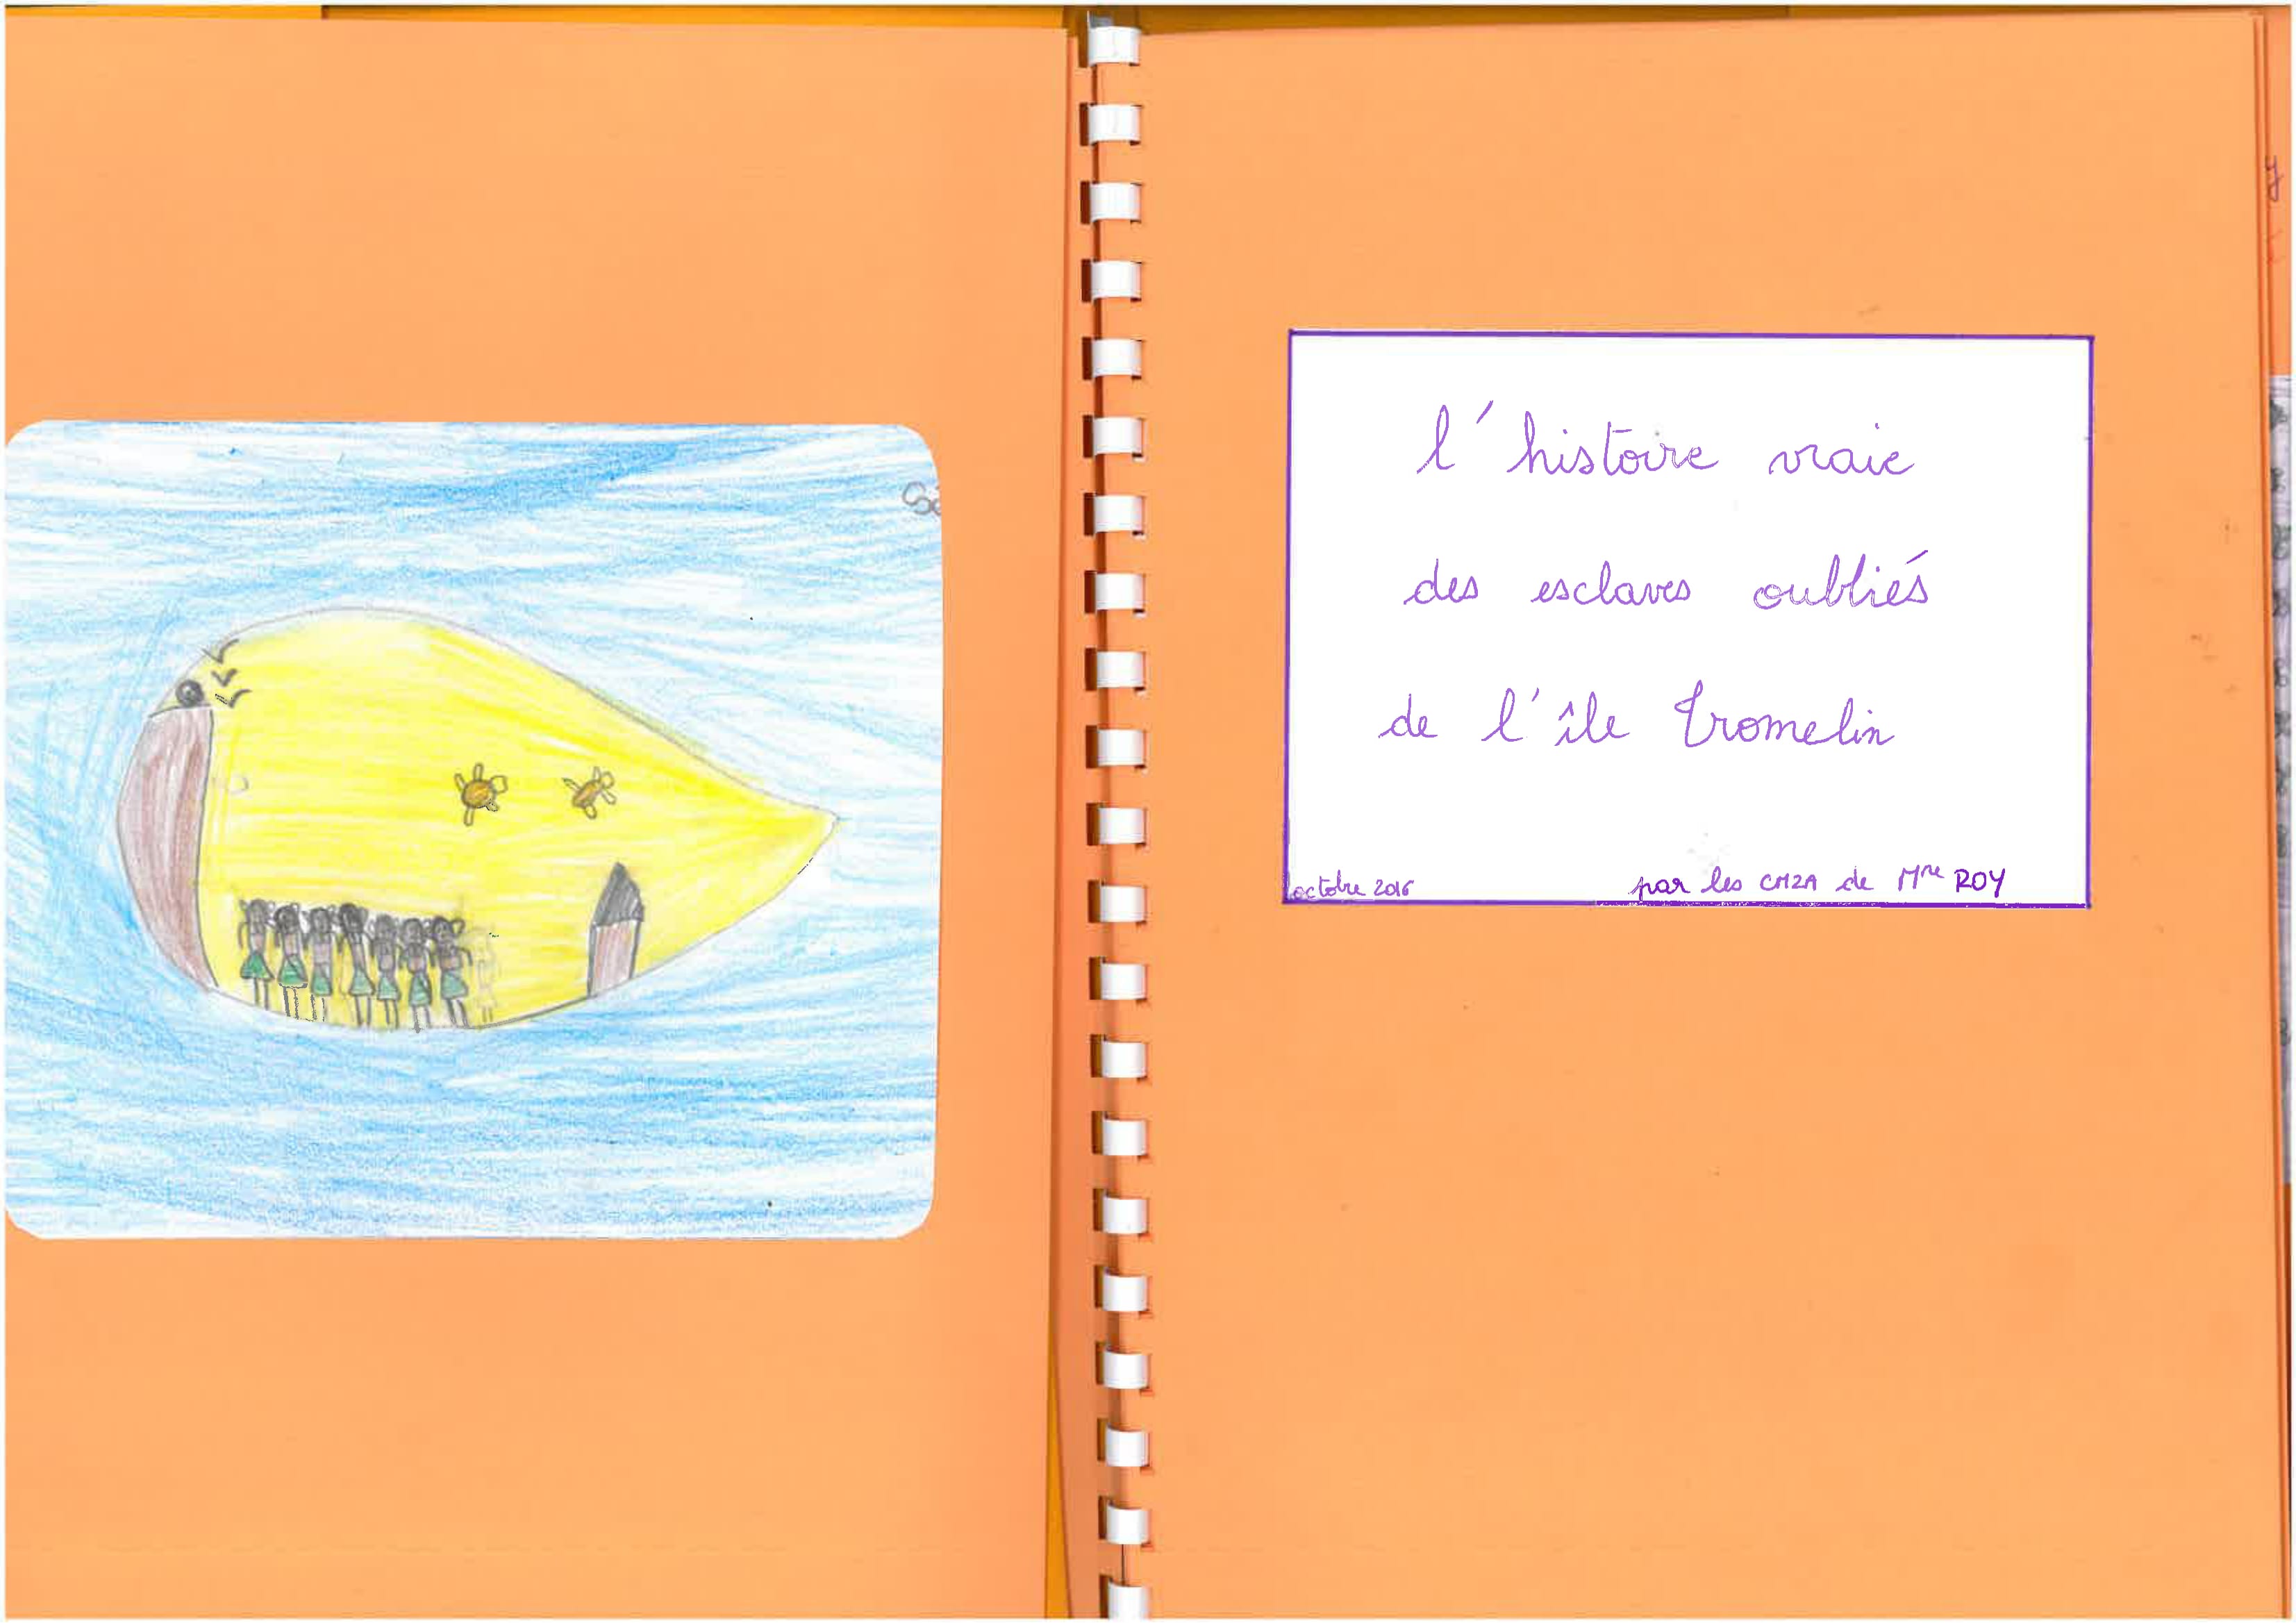 l'histoire vraie
des esclaves oubliés
de l'île Tromelin
octobre 2016 par les CM2A de Mme ROY